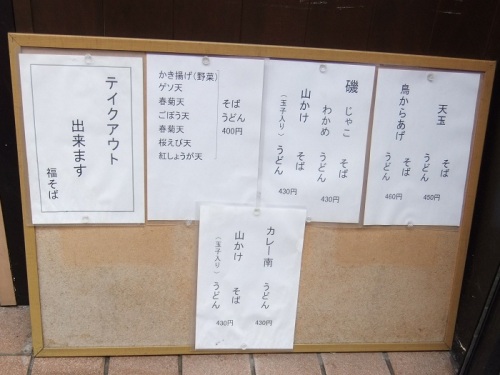 テイクアウト
出来ます
福そば
かき揚げ(野菜)
ゲソ天
春菊天
ごぼう天
春菊天
桜えび天
紅しょうが天
そば
うどん
400円
磯 じゃこ そば
わかめ うどん 430円
山かけ そば
(玉子入り) うどん 430円
天玉 そば 450円
鳥からあげ そば
うどん 460円
カレー南 うどん 430円
山かけ そば
(玉子入り) うどん 430円